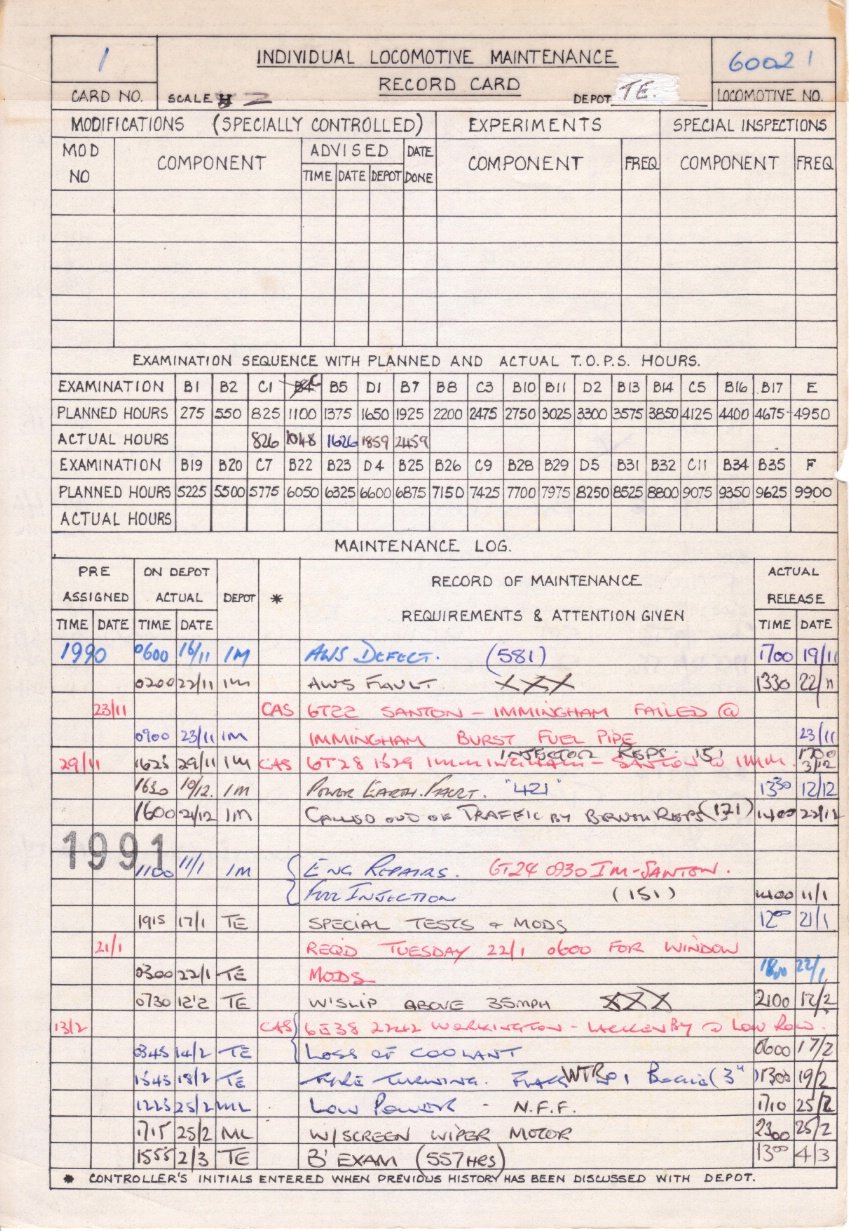 1 INDIVIDUAL LOCOMOTIVE MAINTENANCE 60021
CARD NO. SCALE 2 RECORD CARD DEPOT TE. LOCOMOTIVE NO.
MODIFICATIONS (SPECIALLY CONTROLLED) EXPERIMENTS SPECIAL INSPECTIONS
MOD NO COMPONENT ADVISED DATE DONE COMPONENT FREQ COMPONENT FREQ
TIME DATE DEPOT
EXAMINATION SEQUENCE WITH PLANNED AND ACTUAL T.O.P.S. HOURS.
EXAMINATION B1 B2 C1 B4 C B5 D1 B7 B8 C3 B10 B11 D2 B13 B14 C5 B16 B17 E
PLANNED HOURS 275 550 825 1100 1375 1650 1925 2200 2475 2750 3025 3300 3575 3850 4125 4400 4675 4950
ACTUAL HOURS 826 1048 1626 1859 2459
EXAMINATION B19 B20 C7 B22 B23 D4 B25 B26 C9 B28 B29 D5 B31 B32 C11 B34 B35 F
PLANNED HOURS 5225 5500 5775 6050 6325 6600 6875 7150 7425 7700 7975 8250 8525 8800 9075 9350 9625 9900
ACTUAL HOURS
MAINTENANCE LOG.
PRE ASSIGNED ON DEPOT ACTUAL DEPOT * RECORD OF MAINTENANCE REQUIREMENTS & ATTENTION GIVEN ACTUAL RELEASE
TIME DATE TIME DATE TIME DATE
1990 0600 16/11 IM AWS DEFECT. (581) 1700 19/11
0200 22/11 IM AWS FAULT XXX 1330 22/11
23/11 CAS 6T22 SANTON - IMMINGHAM FAILED @
0900 23/11 IM IMMINGHAM BURST FUEL PIPE 23/11
INJECTOR REPS. 151 1700
29/11 1625 29/11 IM CAS 6T28 1529 IMMINGHAM - SANTON @ IMM. 3/12
1630 10/12. IM POWER EARTH FAULT. "421" 1330 12/12
1600 21/12 IM CALLED OUT OF TRAFFIC BY REPS (171) 1400 22/12
1991
1100 11/1 IM ENG REPAIRS. 6T24 0930 IM-SANTON.
FUEL INJECTION (151) 1400 11/1
1915 17/1 TE SPECIAL TESTS & MODS 1200 21/1
21/1 REQD TUESDAY 22/1 0600 FOR WINDOW
0300 22/1 TE MODS 22/1
0730 12'2 TE W'SLIP ABOVE 35MPH XXX 2100 12/2
13/2 CAS 6E38 2242 WORKINGTON - LACKENBY @ LOW ROW.
0345 14/2 TE LOSS OF COOLANT 0600 17/2
1545 18/2 TE TYRE TURNING. (3") 1300 19/2
1225 25/2 ML LOW POWER - N.F.F. 1710 25/2
1715 25/2 ML W/SCREEN WIPER MOTOR 2300 25/2
1555 2/3 TE B' EXAM (557 HRS) 1300 4/3
* CONTROLLER'S INITIALS ENTERED WHEN PREVIOUS HISTORY HAS BEEN DISCUSSED WITH DEPOT.